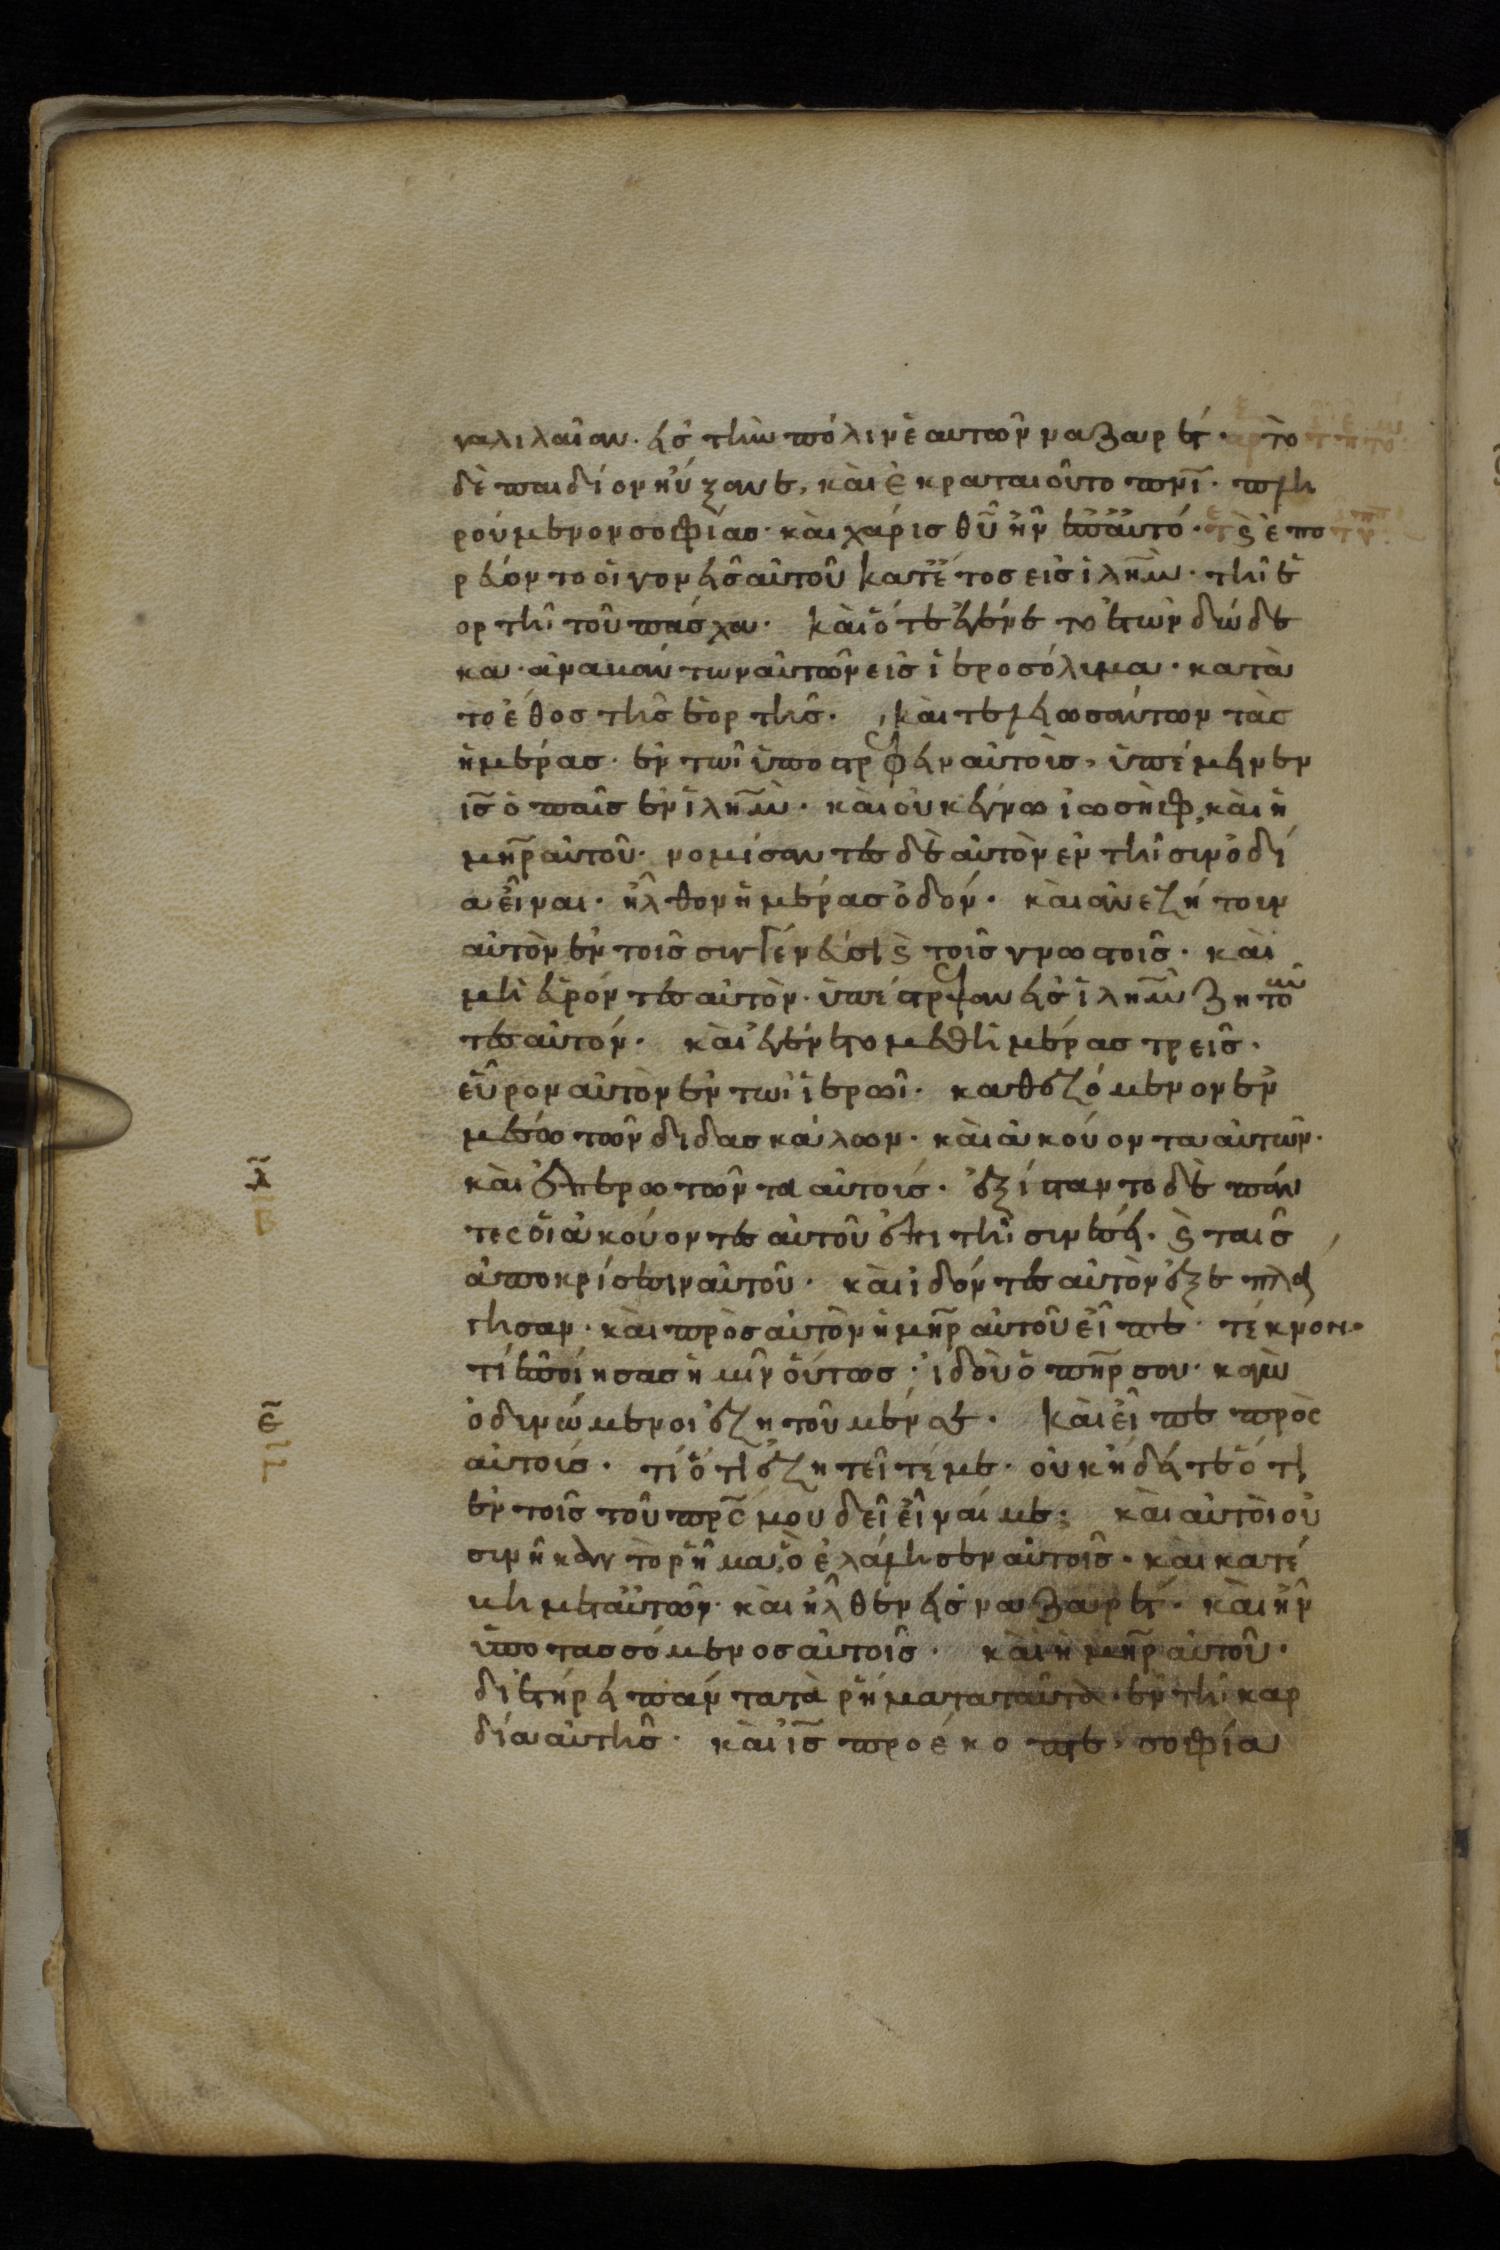 γαλιλαίαν· εἰς τὴν πόλιν ἑαυτῶν ναζαρέτ· τὸ
δὲ παιδίον ηὔξανε, καὶ ἐκραταιοῦτο πνῑ· πλη
ρούμενον σοφίας· καὶ χάρις θῡ ἦν ἐπ' αὐτό· ϗ ἐπο
ρεύοντο οἱ γονεῖς αὐτοῦ κατ' ἔτος εἰς ἰλη̄μ· τῆ ἑ
ορτῆ τοῦ πάσχα· καὶ ὅτε ἐγένετο ἐτῶν δώδε
κα· ἀναβάντων αὐτῶν εἰς ἱεροσόλυμα· κατὰ
τὸ ἔθος τῆς ἑορτῆς· καὶ τελειωσάντων τὰς
ἡμέρας· ἐν τῶι ὑποστρέφειν αὐτοὺς, ὑπέμεινεν
ῑς ὁ παῖς ἐν ἰλη̄μ· καὶ οὐκ ἔγνω ἰωσὴφ, καὶ ἡ
μη̄ρ αὐτοῦ· νομίσαντες δὲ αὐτὸν ἐν τῆ συνοδί
α εἶναι· ἦλθον ἡμέρας ὁδόν· καὶ ἀνεζήτουν
αὐτὸν ἐν τοῖς συγγενέσι ϗ τοῖς γνωστοῖς· καὶ
μὴ εὑρόντες αὐτὸν· ὑπέστρεψαν εἰς ἰλη̄μ ζητοῦν
τες αὐτόν· καὶ ἐγένετο μεθ' ἡμέρας τρεῖς·
εὗρον αὐτὸν ἐν τῶι ἱερῶι· καθεζόμενον ἐν
μέσω τῶν διδασκάλων· καὶ ἀκούοντα αὐτῶν·
καὶ ἐπερωτῶντα αὐτούς· ἐξίσταντο δὲ πάν
τες οἱ ἀκούοντες αὐτοῦ ἐπὶ τῆ συνέσει· ϗ ταῖς
ἀποκρίσεσιν αὐτοῦ· καὶ ἰδόντες αὐτὸν ἐξεπλά
γησαν· καὶ πρὸς αὐτὸν ἡ μη̄ρ αὐτοῦ εἶπε· τέκνον·
τί ἐποίησας ἡμῖν οὕτως· ἰδοὺ ὁ πη̄ρ σου· κἀγὼ
ὀδυνώμενοι ἐζητοῦμέν σε· καὶ εἶπε πρὸς
αὐτούς· τί ὅτι ἐζητεῖτέ με· οὐκ ἤδειτε ὅτι
ἐν τοῖς τοῦ πρ̄ς μου δεῖ εἶναί με; καὶ αὐτοὶ οὐ
συνῆκαν τὸ ῥῆμα, ὃ ἐλάλησεν αὐτοῖς· καὶ κατέ
βη μετ' αὐτῶν· καὶ ἦλθεν εἰς ναζαρέτ· καὶ ἦν
ὑποτασσόμενος αὐτοῖς· καὶ ἡ μη̄ρ αὐτοῦ·
διετήρει πάντα τὰ ῥήματα ταῦτα· ἐν τῆ καρ
δία αὐτῆς· καὶ ῑς προέκοπτε· σοφία